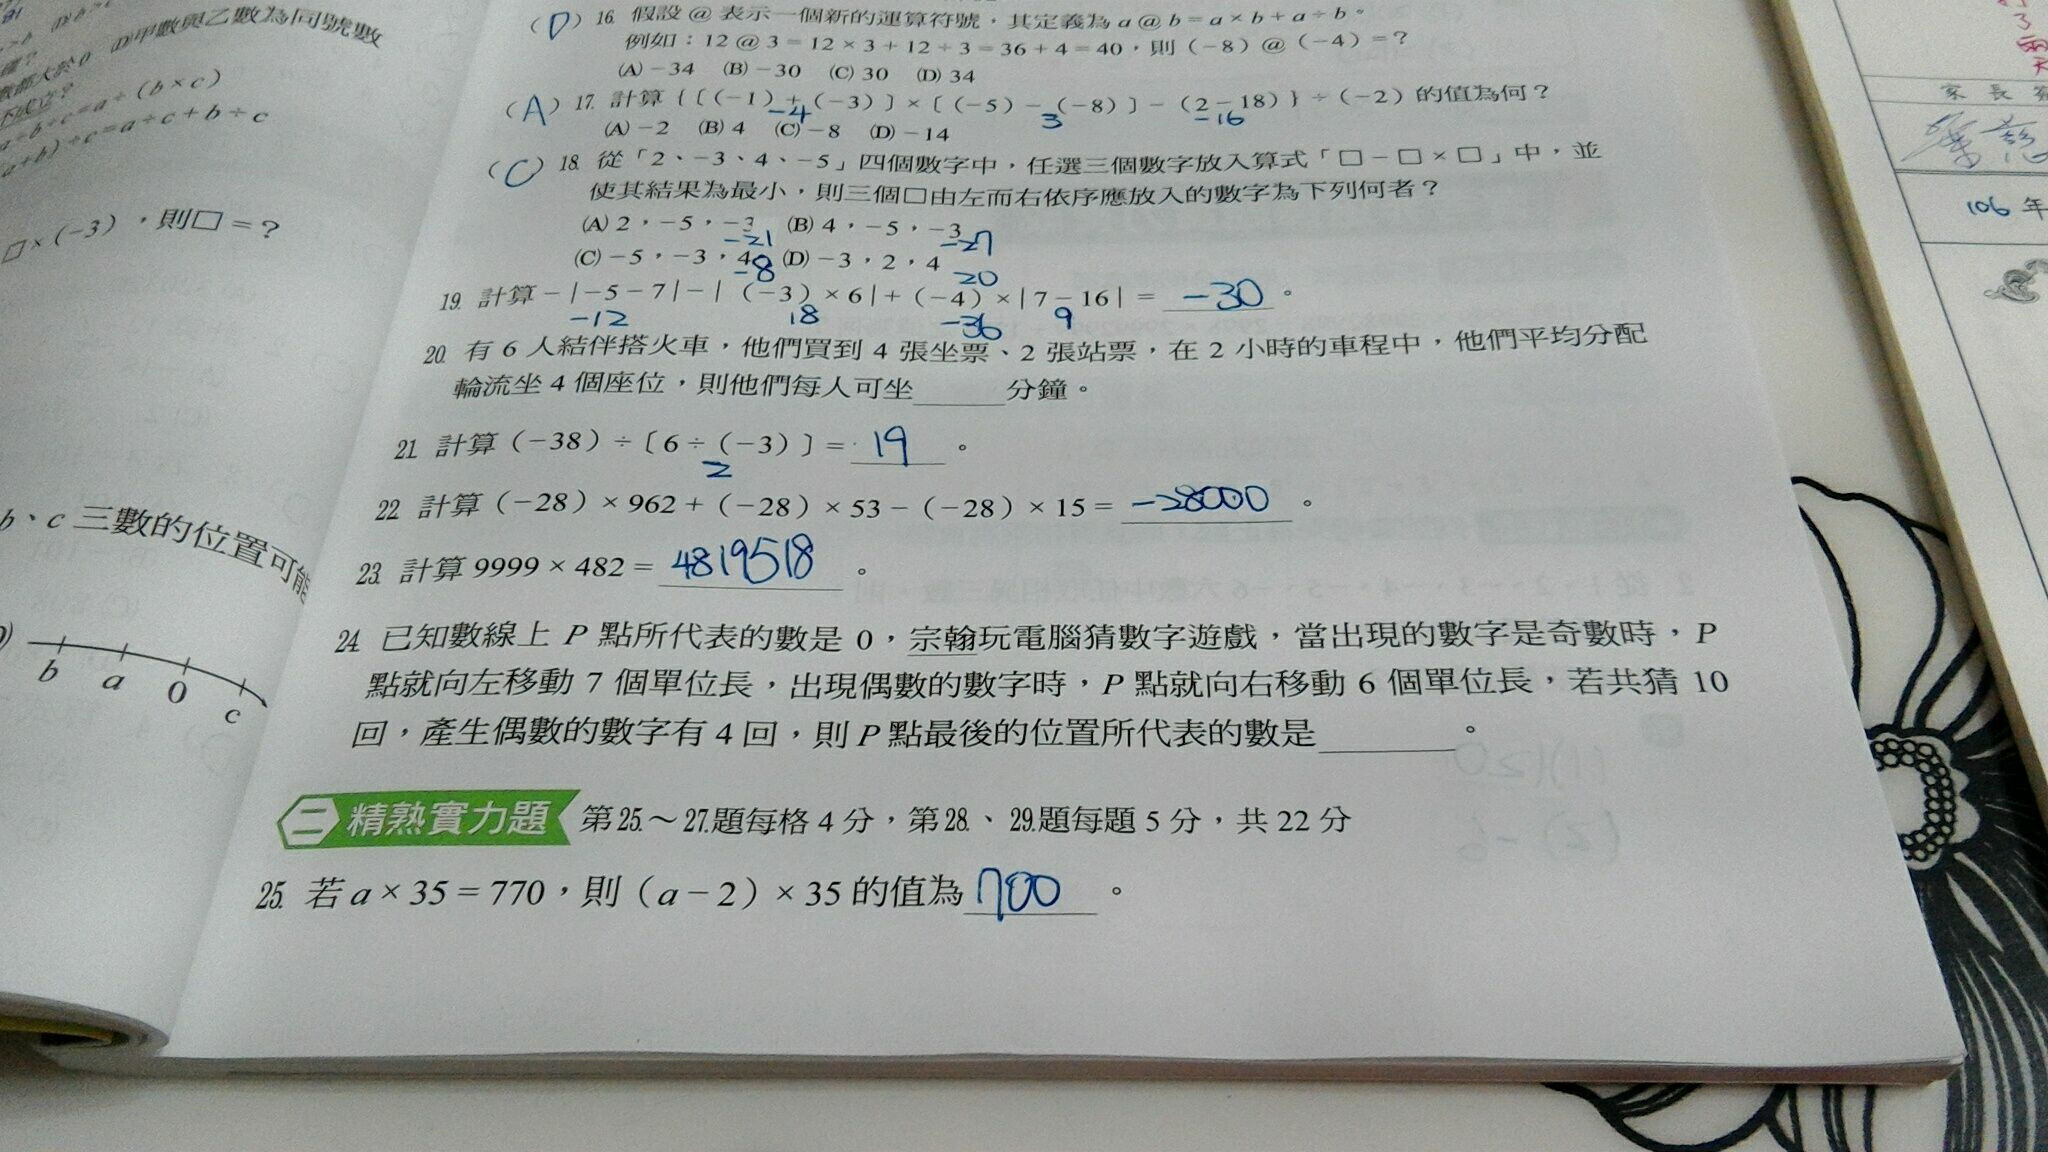 數與乙數為同號數
a÷b÷c=a÷(b×c)
a÷c+b÷c
□×(-3)，則□=?
b、c 三數的位置可能
b a 0 c
(D) 16. 假設 @ 表示一個新的運算符號，其定義為 a @ b = a × b + a ÷ b。
例如：12 @ 3 = 12 × 3 + 12 ÷ 3 = 36 + 4 = 40，則 (-8) @ (-4) = ?
(A) -34 (B) -30 (C) 30 (D) 34
(A) 17. 計算 {〔(-1) + (-3)〕×〔(-5) - (-8)〕- (2-18)} ÷ (-2) 的值為何？
-4 3 -16
(A) -2 (B) 4 (C) -8 (D) -14
(C) 18. 從「2、-3、4、-5」四個數字中，任選三個數字放入算式「□-□×□」中，並
使其結果為最小，則三個□由左而右依序應放入的數字為下列何者？
(A) 2，-5，-3 (B) 4，-5，-3
-21 -27
(C) -5，-3，4 (D) -3，2，4
-8 20
19. 計算 -|-5-7|-| (-3) × 6|+ (-4) ×|7-16| = -30。
-12 18 -36 9
20. 有 6 人結伴搭火車，他們買到 4 張坐票、2 張站票，在 2 小時的車程中，他們平均分配
輪流坐 4 個座位，則他們每人可坐____分鐘。
21. 計算 (-38) ÷〔6 ÷ (-3)〕= 19。
2
22. 計算 (-28) × 962 + (-28) × 53 - (-28) × 15 = -28000。
23. 計算 9999 × 482 = 4819518。
24. 已知數線上 P 點所代表的數是 0，宗翰玩電腦猜數字遊戲，當出現的數字是奇數時，P
點就向左移動 7 個單位長，出現偶數的數字時，P 點就向右移動 6 個單位長，若共猜 10
回，產生偶數的數字有 4 回，則 P 點最後的位置所代表的數是____。
二 精熟實力題 第25.～27.題每格 4 分，第28.、29.題每題 5 分，共 22 分
25. 若 a × 35 = 770，則 (a-2) × 35 的值為 700。
家長簽
106 年